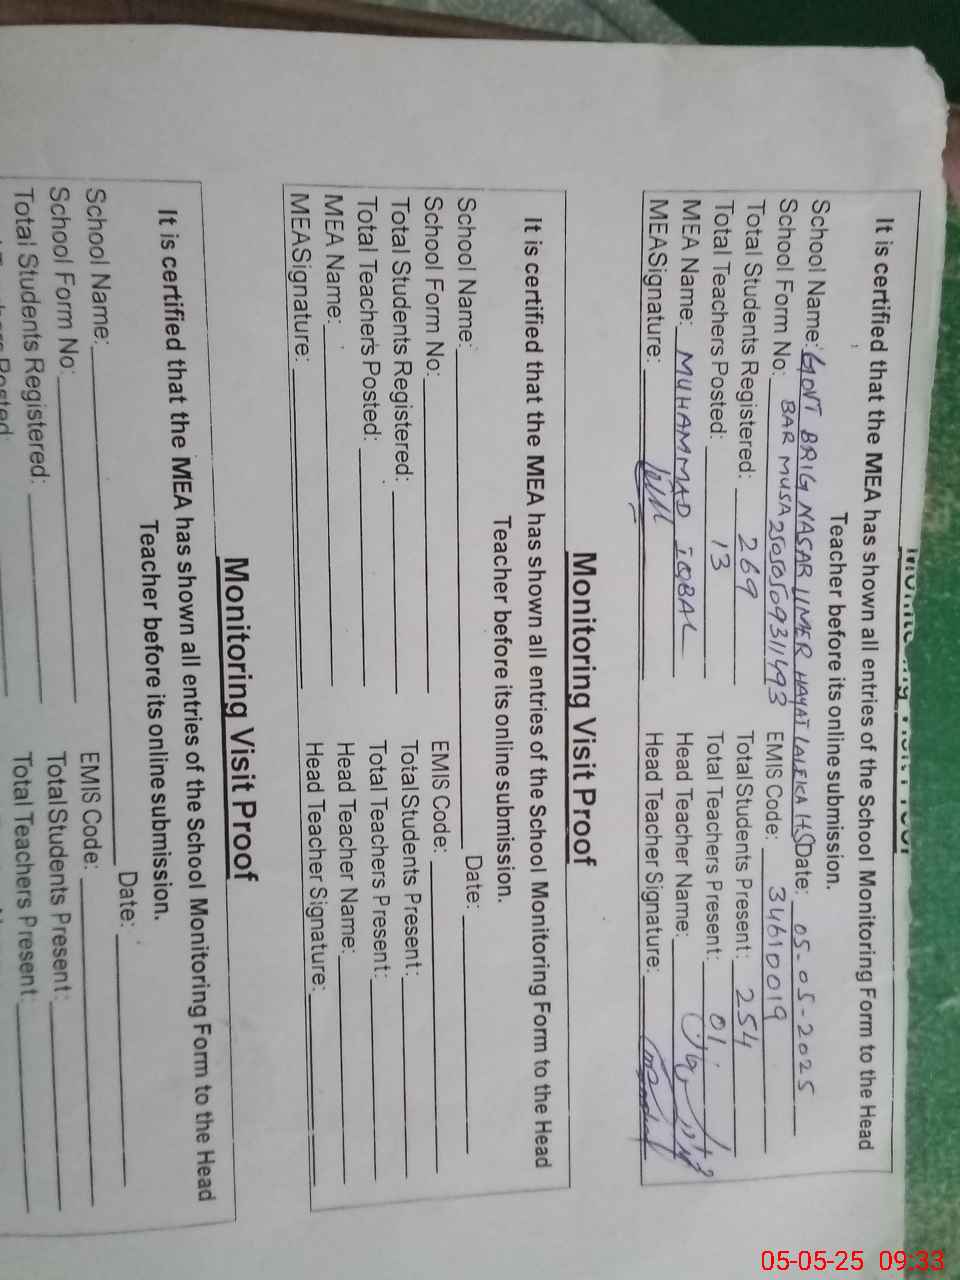 Monitoring Visit Proof
It is certified that the MEA has shown all entries of the School Monitoring Form to the Head
Teacher before its online submission.
School Name: GOVT BRIG NASAR UMER HAYAT LALEKA HS Date: 05-05-2025
School Form No: BAR MUSA 25050509311493 EMIS Code: 34610019
Total Students Registered: 269 Total Students Present: 254
Total Teachers Posted: 13 Total Teachers Present: 01
MEA Name: MUHAMMAD IQBAL Head Teacher Name:
MEASignature: Head Teacher Signature:
Monitoring Visit Proof
It is certified that the MEA has shown all entries of the School Monitoring Form to the Head
Teacher before its online submission.
School Name: Date:
School Form No: EMIS Code:
Total Students Registered: Total Students Present:
Total Teachers Posted: Total Teachers Present:
MEA Name: Head Teacher Name:
MEASignature: Head Teacher Signature:
Monitoring Visit Proof
It is certified that the MEA has shown all entries of the School Monitoring Form to the Head
Teacher before its online submission.
School Name: Date:
School Form No: EMIS Code:
Total Students Registered: Total Students Present:
Total Teachers Present:
05-05-25 09:33